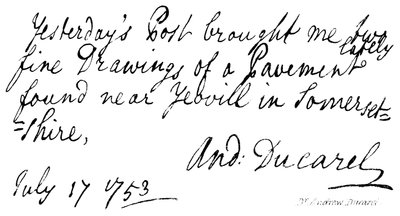 Yesterday's Post brought me two
fine Drawings of a Pavement lately
found near Yeovill in Somerset=
=shire,
And: Ducarel
July 17 1753
Dr Andrew Ducarel